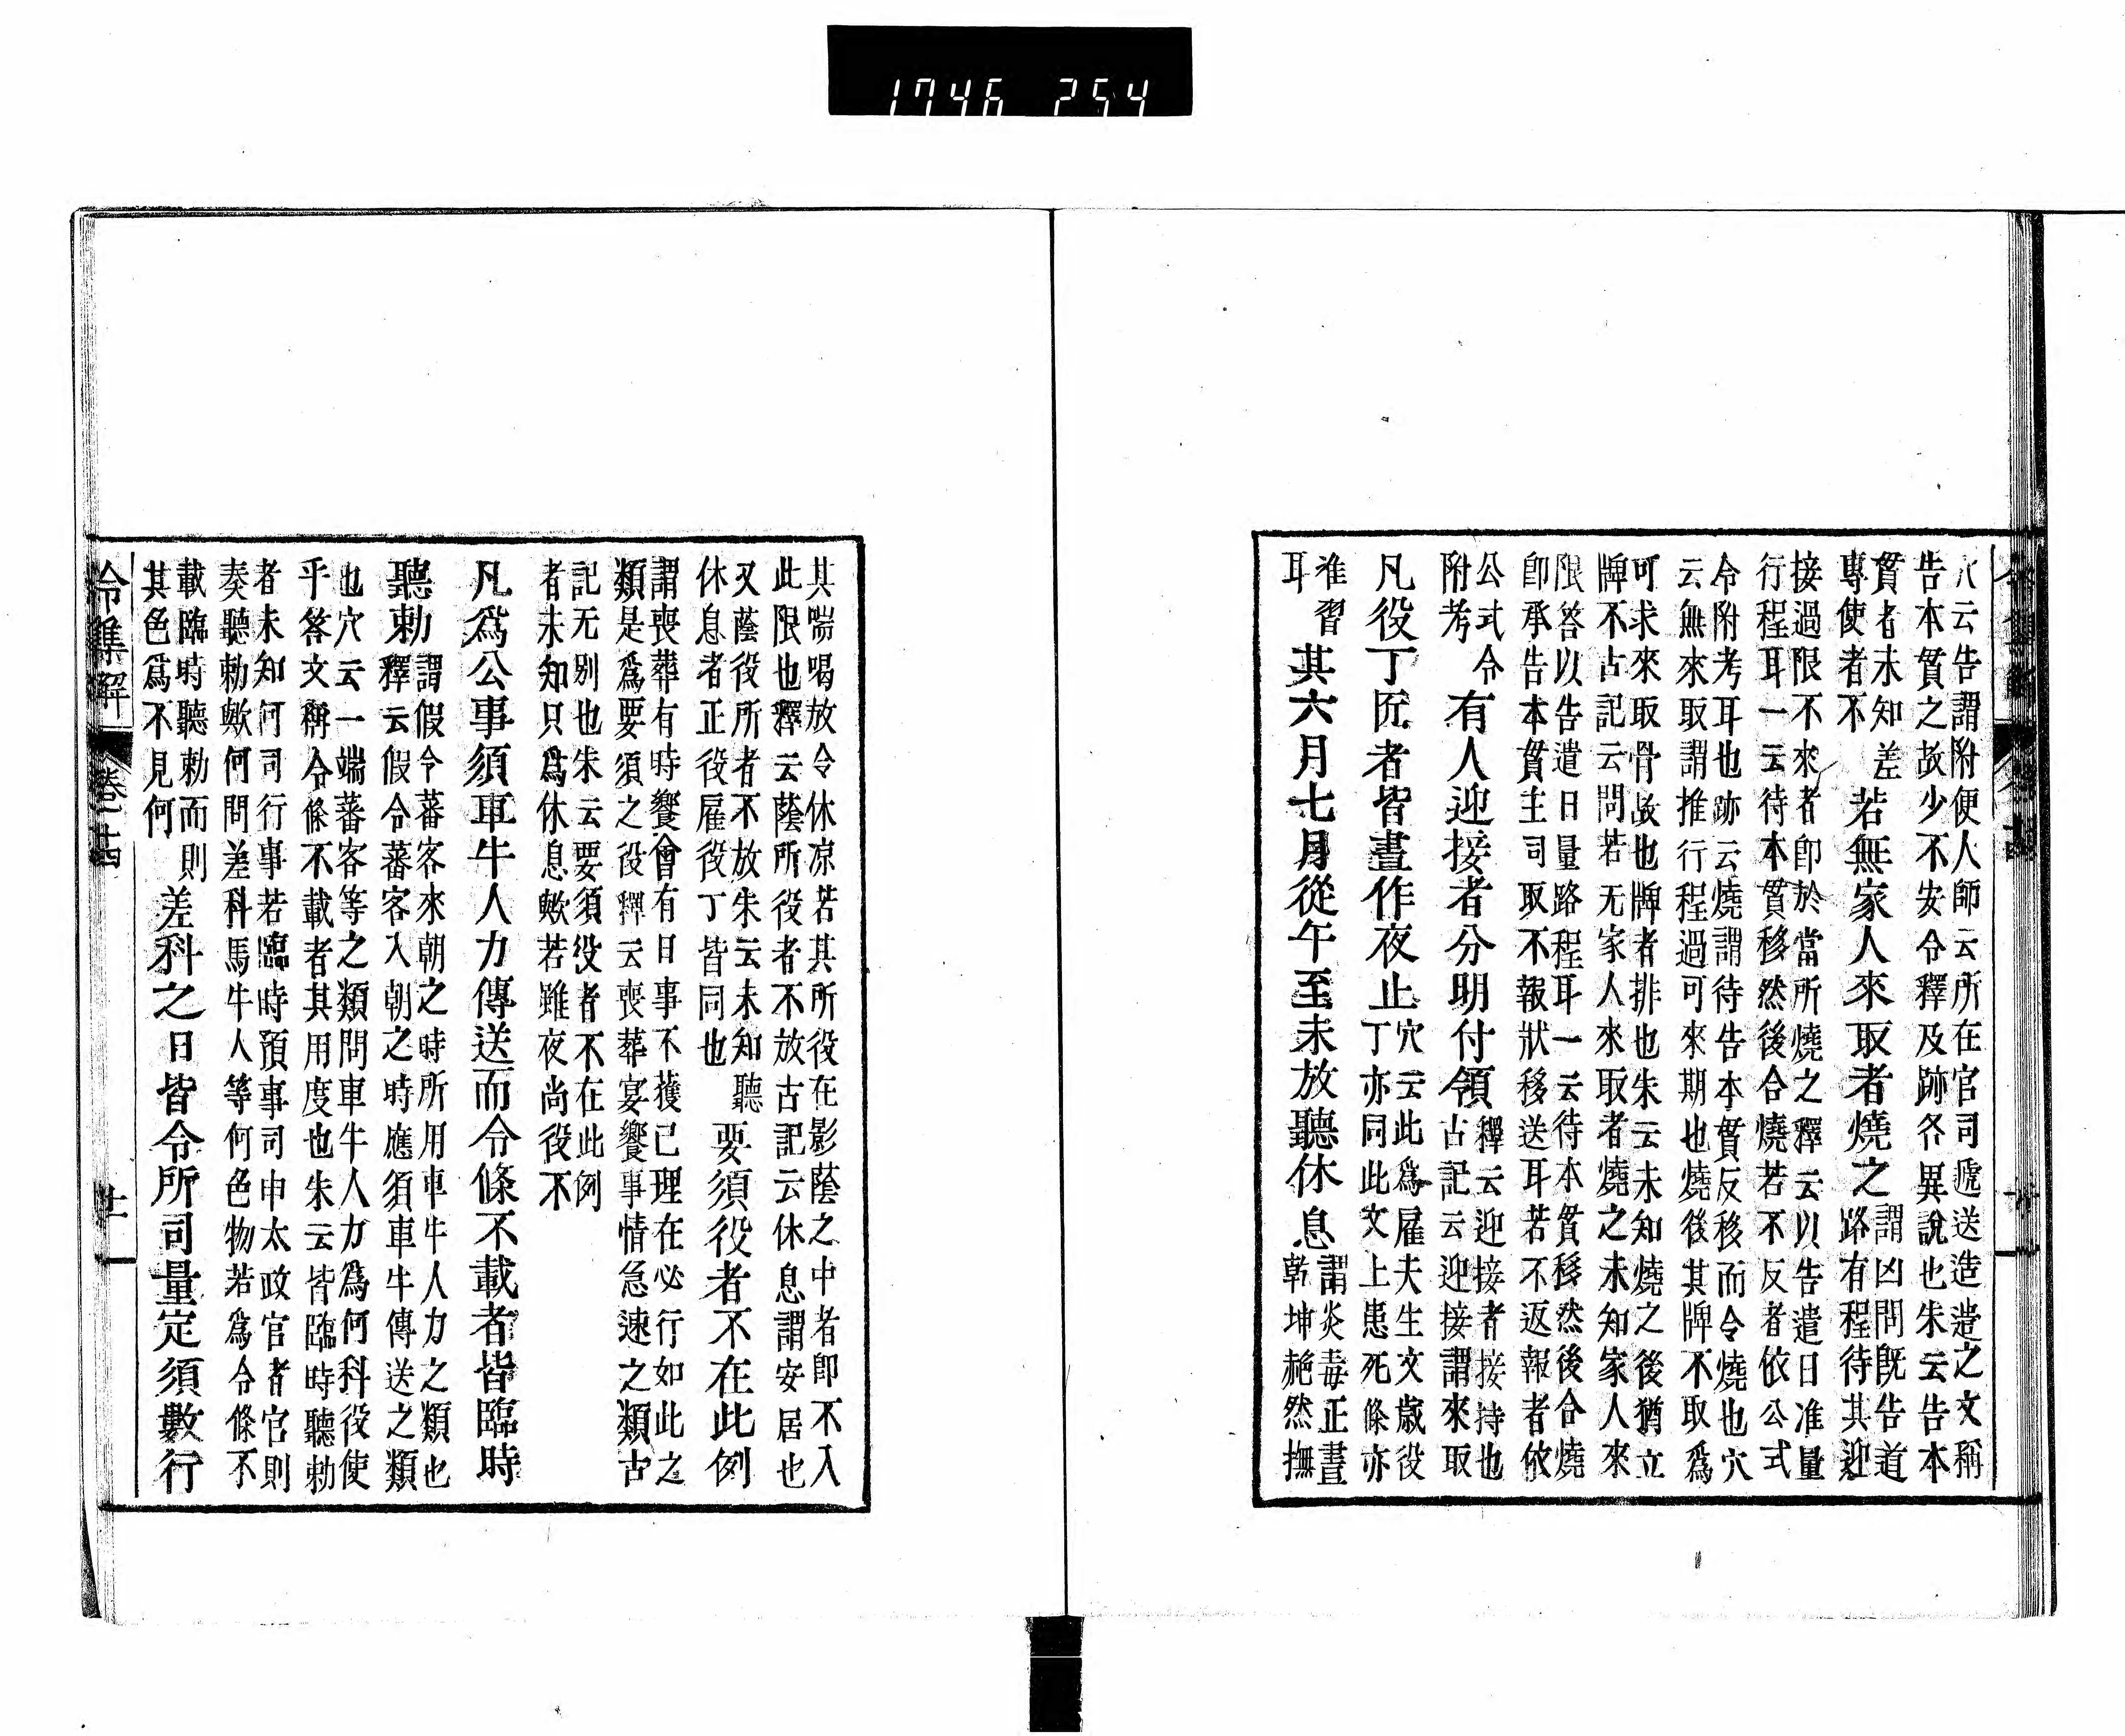 1746 254
穴云告謂附便人師云所在官司遞送造遣之文稱
告本貫之故少不安令釋及跡各異說也朱云告本
貫者未知差
專使者不
若無家人來取者燒之
謂凶問既告道
路有程待其迎
接過限不來者卽於當所燒之釋云以告遣日准量
行程耳一云待本貫移然後合燒若不反者依公式
令附考耳也跡云燒謂待告本貫反移而令燒也穴
云無來取謂推行程過可來期也燒後其牌不取爲
可求來取骨故也牌者排也朱云未知燒之後猶立
牌不古記云問若无家人來取者燒之未知家人來
限答以告遣日量路程耳一云待本貫移然後合燒
卽承告本貫主司取不報狀移送耳若不返報者依
公式令
附考
有人迎接者分明付領
釋云迎接者接持也
古記云迎接謂來取
凡役丁匠者皆晝作夜止
穴云此爲雇夫生文歲役
丁亦同此文上患死條亦
准習
耳
其六月七月從午至未放聽休息
謂炎毒正晝
乾坤赩然撫
其喘喝放令休凉若其所役在影蔭之中者卽不入
此限也釋云蔭所役者不放古記云休息謂安居也
又蔭役所者不放朱云未知聽
休息者正役雇役丁皆同也
要須役者不在此例
謂喪葬有時饗會有日事不獲已理在必行如此之
類是爲要須之役釋云喪葬宴饗事情急速之類古
記无別也朱云要須役者不在此例
者未知只爲休息歟若雖夜尚役不
凡爲公事須車牛人力傳送而令條不載者皆臨時
聽勅
謂假令蕃客來朝之時所用車牛人力之類也
釋云假令蕃客入朝之時應須車牛傳送之類
也穴云一端蕃客等之類問車牛人力爲何科役使
乎答文稱令條不載者其用度也朱云皆臨時聽勅
者未知何司行事若臨時預事司申太政官者官則
奏聽勅歟何問差科馬牛人等何色物若爲令條不
載臨時聽勅而則
其色爲不見何
差科之日皆令所司量定須數行
令集解
卷十四
廿一